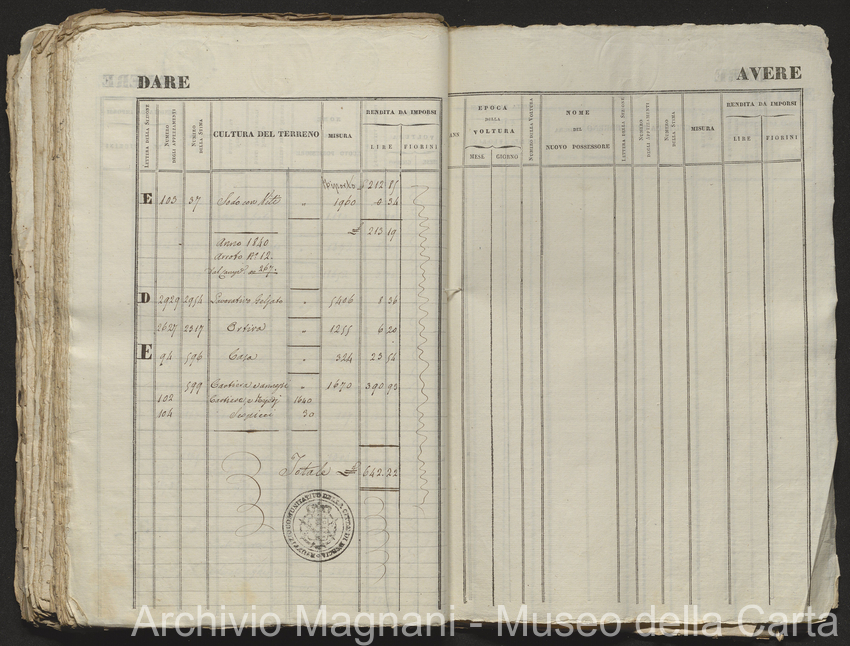 DARE
LETTERA DELLA SEZIONE
NUMERO DEGLI APPEZZAMENTI
NUMERO DELLA STIMA
CULTURA DEL TERRENO
MISURA
RENDITA DA IMPORSI
LIRE
FIORINI
212 85
E 103 37 Sodo con Viti " 1960 " 34
213 19
Anno 1840
Arroto N.° 12.
267.
D 2929 2954 Lavorativo Gelsato " 5406 8 36
2627 2317 Ortiva " 1255 6 20
E 94 596 Casa " 324 23 54
599 Cartiera e annessi " 1670 390 93
102 1640
104 30
Totale £ 642.22
AVERE
EPOCA
DELLA
VOLTURA
MESE
GIORNO
NUMERO DELLA VOLTURA
NOME
DEL
NUOVO POSSESSORE
LETTERA DELLA SEZIONE
NUMERO DEGLI APPEZZAMENTI
NUMERO DELLA STIMA
MISURA
RENDITA DA IMPORSI
LIRE
FIORINI
Archivio Magnani - Museo della Carta